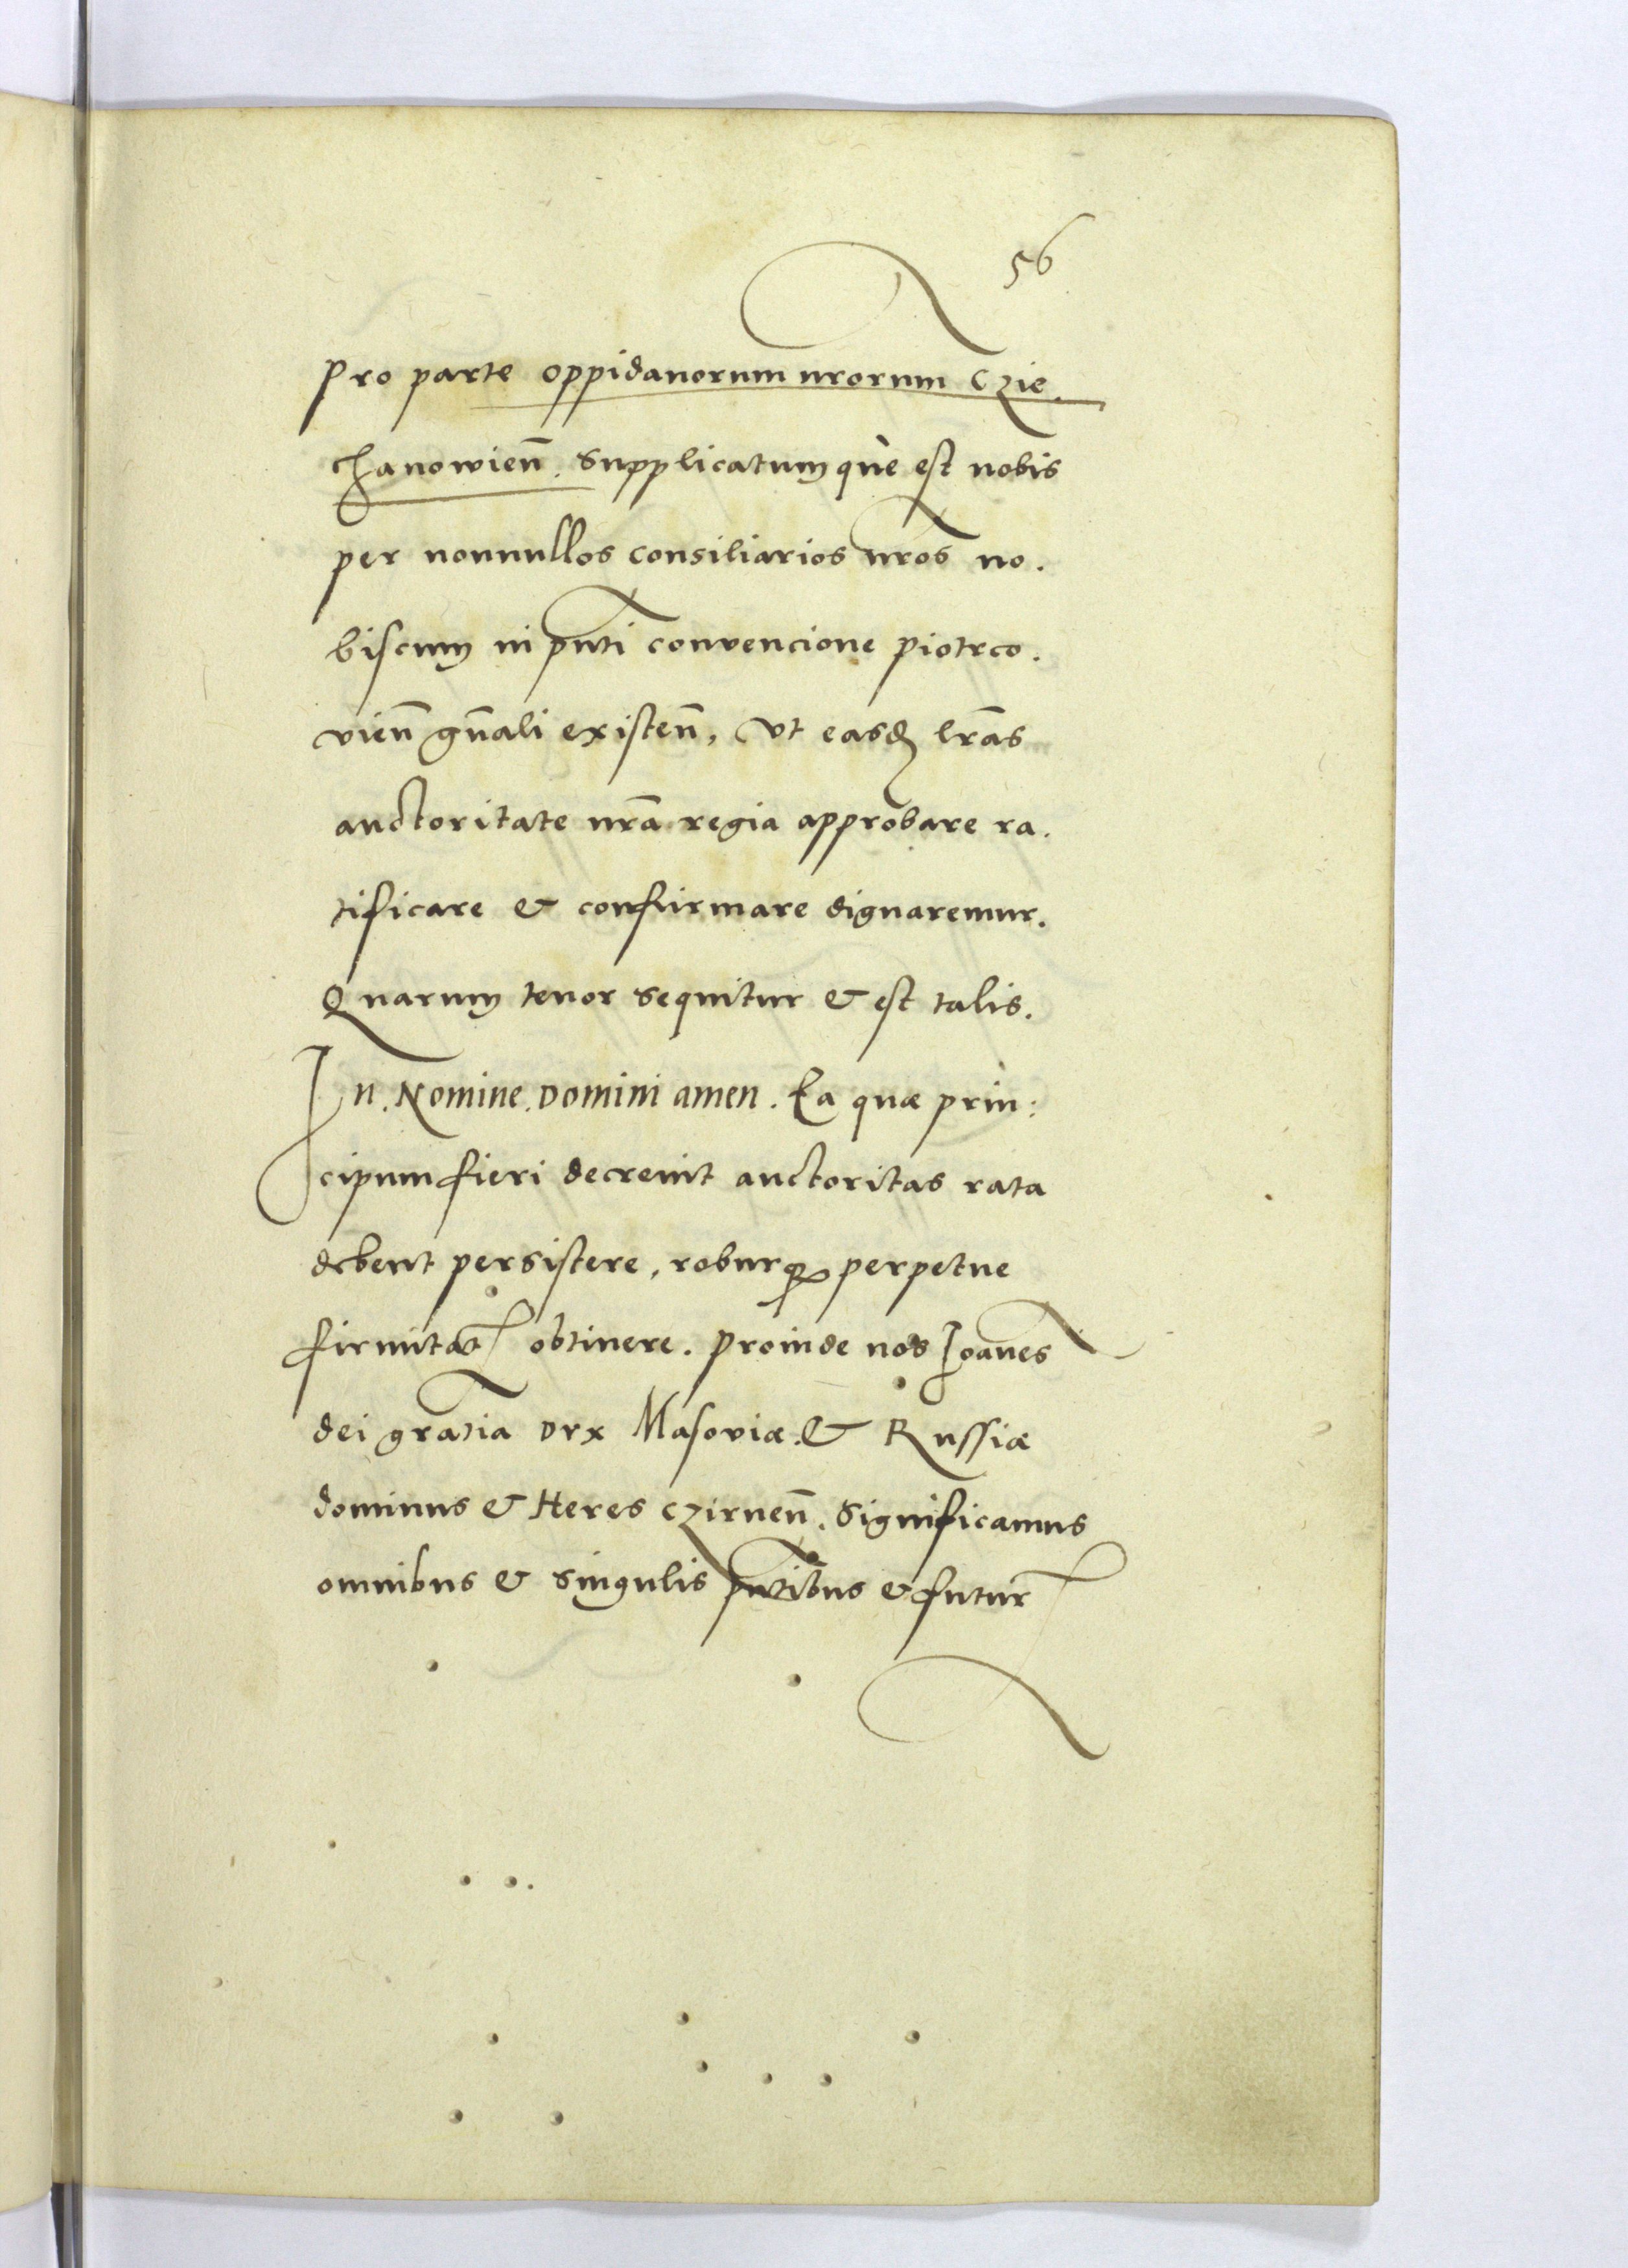 56
Pro parte oppidanorum nrorum Czie.
chanowien̄. supplicatumquè est nobis
per nonnullos consiliarios nr̃os no.
biscum in pñti convencione piotrco.
vien̄ gñali existen̄, vt easdẽ lr̃as
auctoritate nr̃a regia approbare ra.
tificare & confirmare dignaremur.
Quarum tenor sequitur & est talis.
In. Nomine. Domini amen. Ea quæ prin:
cipum fieri decrevit auctoritas rata
debent persistere, roburqꝫ perpetue
firmitatꝭ obtinere. proinde nos Joañes
dei gratia Dux Masoviæ. & Russiæ
dominus & Heres czirnen̄. Significamus
omnibus & singulis pñtibus & futurꝭ